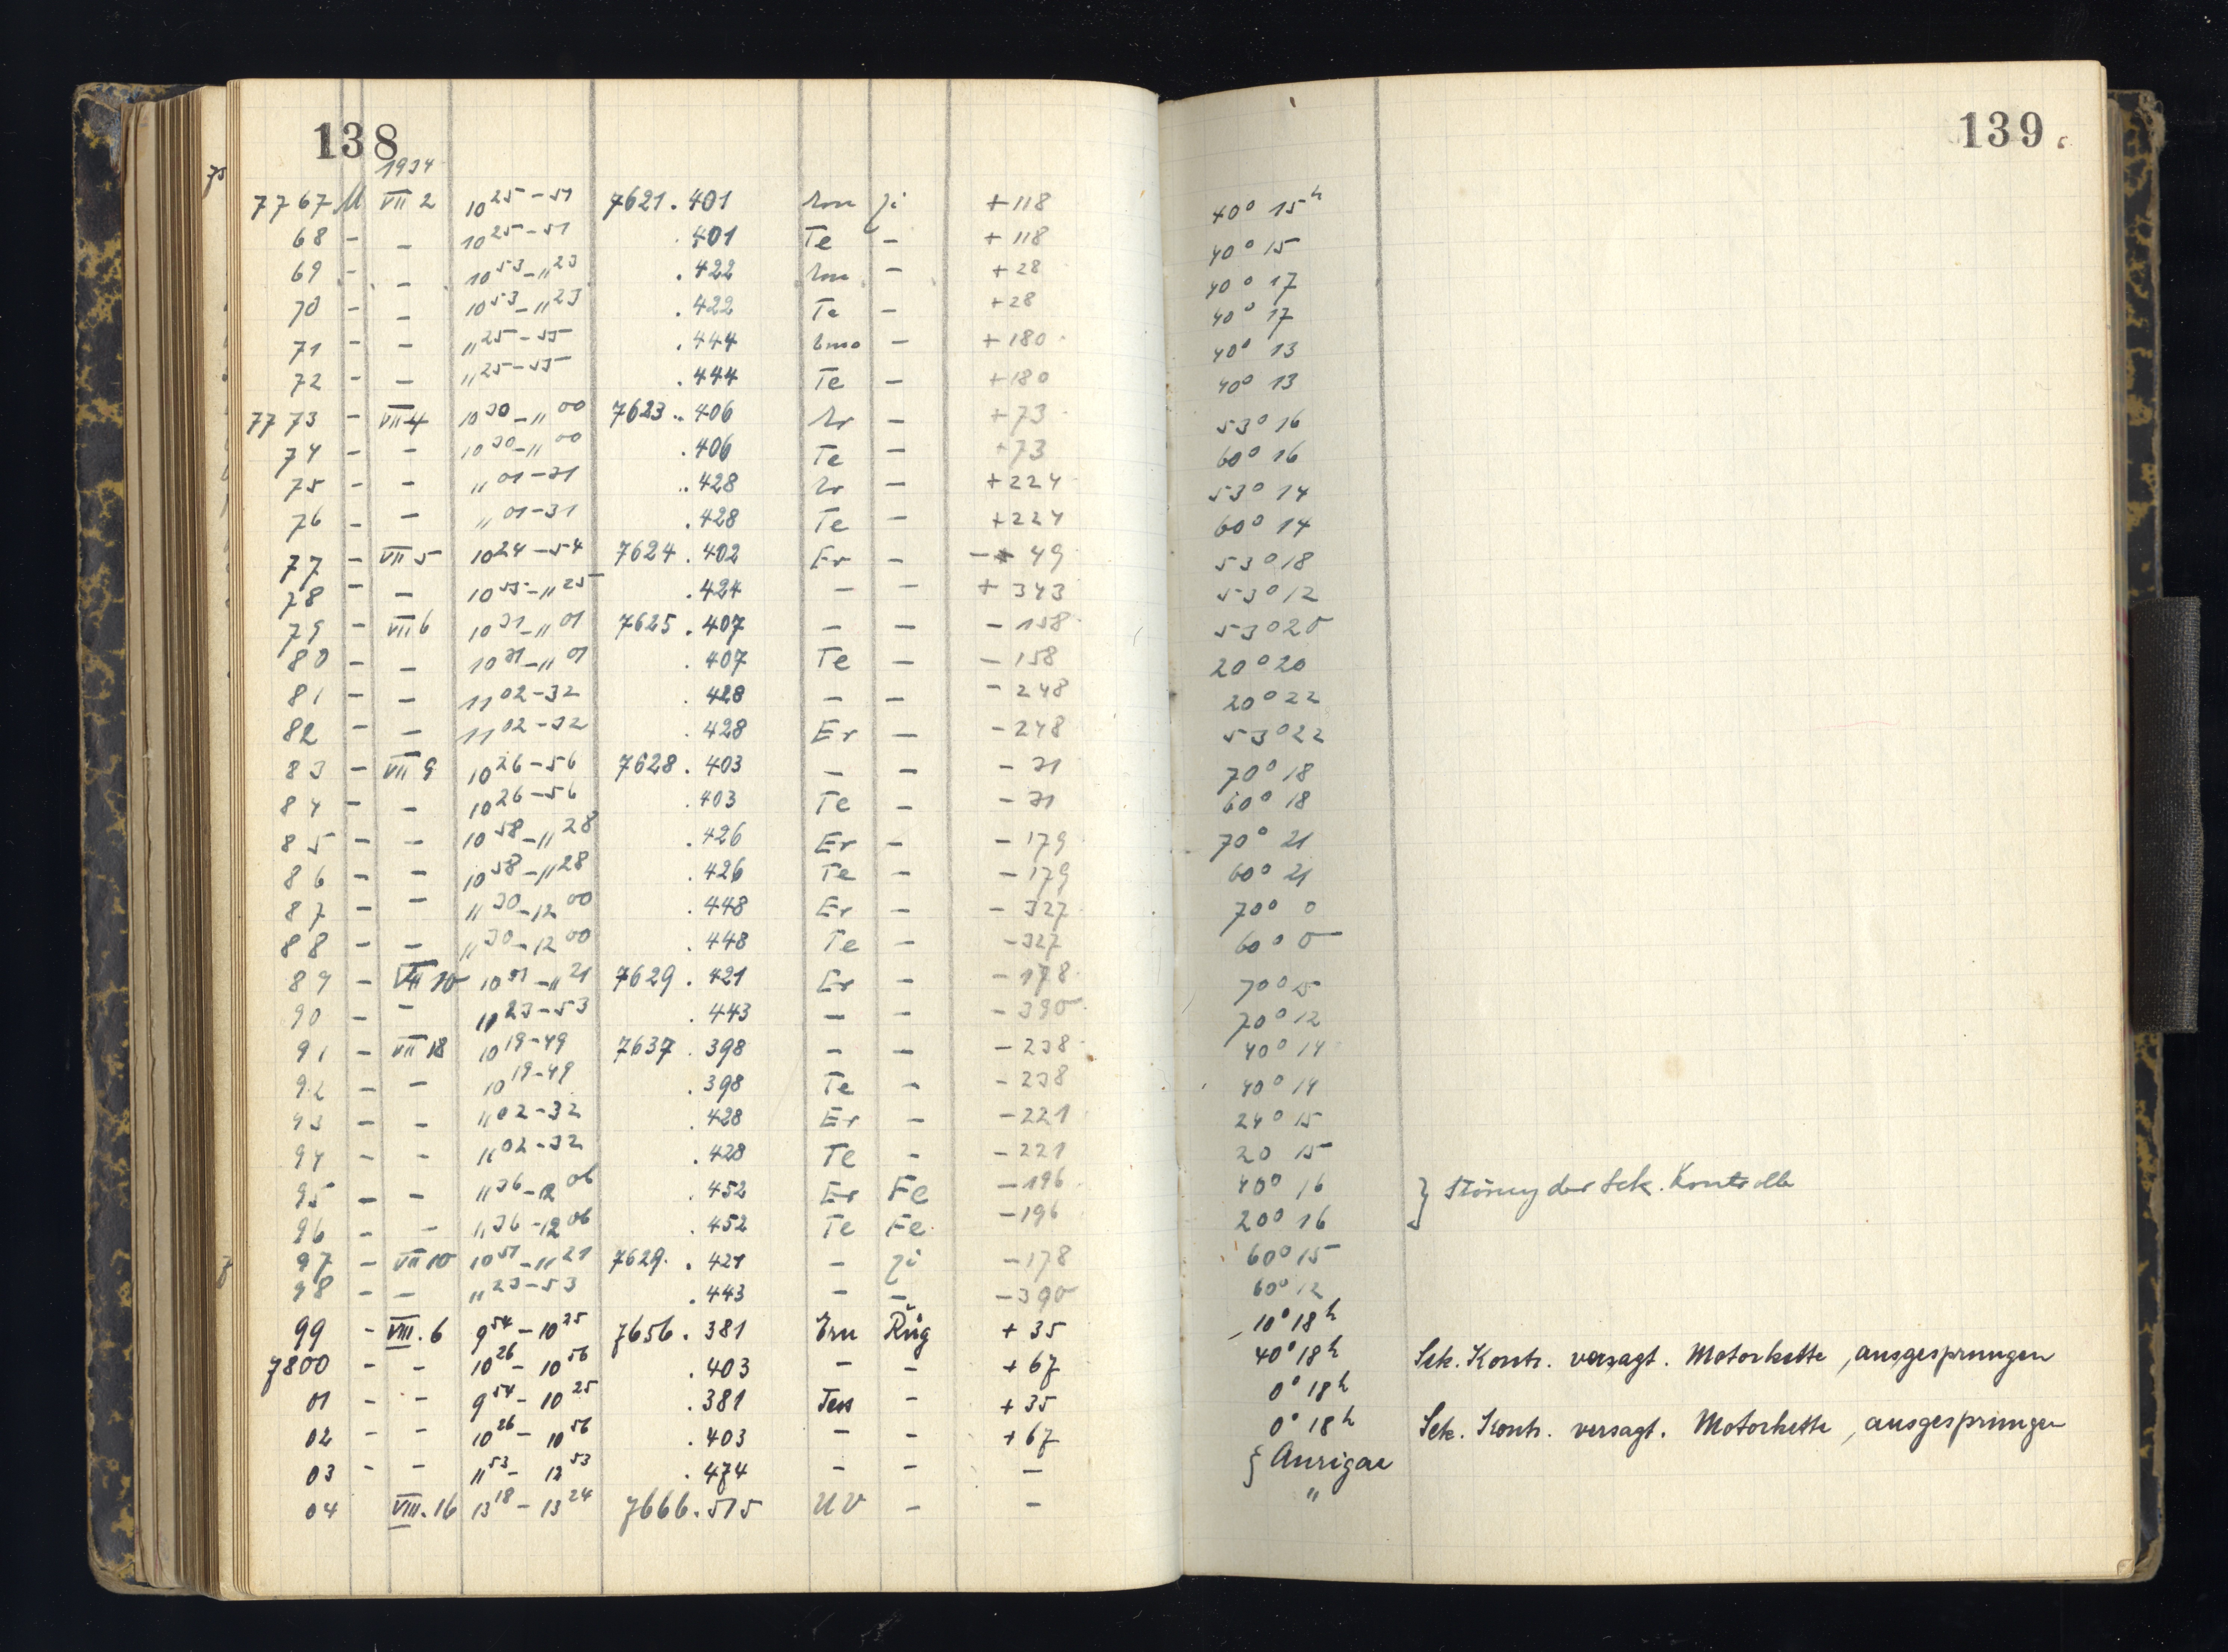 138
139
1934
7767 M VII 2 10 25-51 7621.401 Ji +118 40° 15h
68 - - 10 25-51 .401 Te - +118 40° 15
69 - - 10 53-11 23 .422 - +28 40° 17
70 - - 10 53-11 23 .422 Te - +28 40° 17
71 - - 11 25-55 .444 - +180 40° 13
72 - - 11 25-55 .444 Te - +180 40° 13
7773 - VII 4 10 30-11 00 7623.406 - +73 53° 16
74 - - 10 30-11 00 .406 Te - +73 60° 16
75 - - 11 01-31 .428 - +224 53° 14
76 - - 11 01-31 .428 Te - +224 60° 14
77 - VII 5 10 24-54 7624.402 Er - - 49 53° 18
78 - - 10 55-11 25 .424 - - +343 53° 12
79 - VII 6 10 31-11 01 7625.407 - - -158 53° 20
80 - - 10 31-11 01 .407 Te - -158 20° 20
81 - - 11 02-32 .428 - - -248 20° 22
82 - - 11 02-32 .428 Er - -248 53° 22
83 - VII 9 10 26-56 7628.403 - - -31 70° 18
84 - - 10 26-56 .403 Te - -31 60° 18
85 - - 10 58-11 28 .426 Er - -179 70° 21
86 - - 10 58-11 28 .426 Te - -179 60° 21
87 - - 11 30-12 00 .448 Er - -327 70° 0
88 - - 11 30-12 00 .448 Te - -327 60° 0
89 - VII 10 10 51-11 21 7629.421 Er - -178 70° 15
90 - - 11 23-53 .443 - - -390 70° 12
91 - VII 18 10 19-49 7637.398 - - -238 40° 14
92 - - 10 19-49 .398 Te - -238 40° 14
93 - - 11 02-32 .428 Er - -221 24° 15
94 - - 11 02-32 .428 Te - -221 20 15
95 - - 11 36-12 06 .452 Er Fe -196 40° 16 } Störung der Sek. Kontrolle
96 - - 11 36-12 06 .452 Te Fe. -196 20° 16
97 - VII 10 10 51-11 21 7629.421 - Ji -178 60° 15
98 - - 11 23-53 .443 - - -390 60° 12
99 - VIII. 6 9 54 - 10 25 7656.381 Ern Rüg +35 10° 18h
7800 - - 10 26 - 10 56 .403 - - +67 40° 18h Sek. Kontr. versagt. Motorkette, ausgesprungen
01 - - 9 54 - 10 25 .381 Tess - +35 0° 18h
02 - - 10 26 - 10 56 .403 - - +67 0° 18h Sek. Kontr. versagt. Motorkette, ausgesprungen
03 - - 11 53 - 12 53 .474 - - - ζ Aurigae
04 VIII. 16 13 18 - 13 24 7666.515 UV - - "